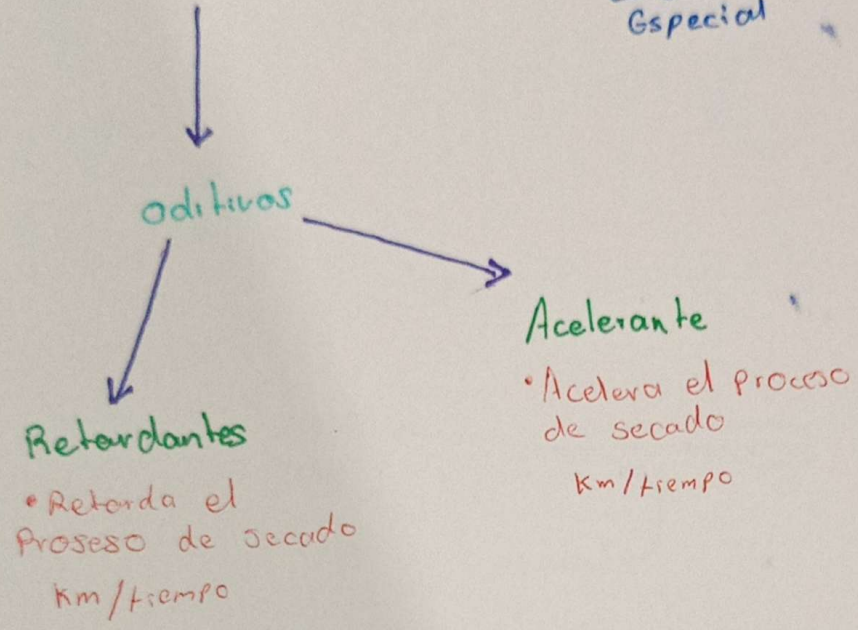 Gspecial
aditivos
Acelerante
• Acelera el proceso
de secado
km/tiempo
Retardantes
• Retarda el
Proseso de secado
km/tiempo